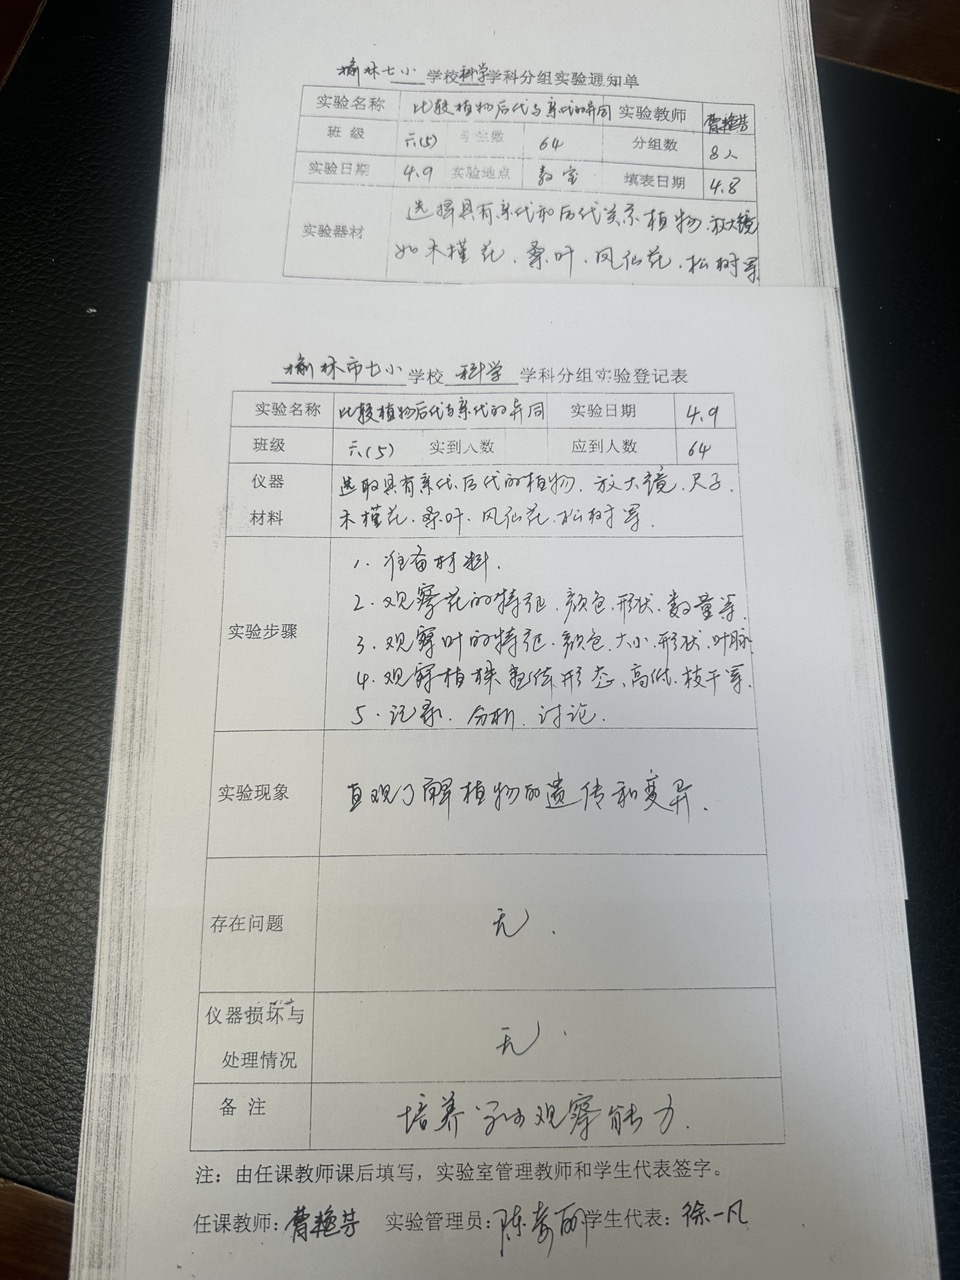 榆林七小 学校 科学 学科分组实验通知单
实验名称 比较植物后代与亲代的异同 实验教师 曹艳芳
班 级 六(5) 学生数 64 分组数 8人
实验日期 4.9 实验地点 教室 填表日期 4.8
实验器材 选择具有亲代和后代关系植物.放大镜
如木槿花、桑叶、凤仙花、松树等
榆林市七小 学校 科学 学科分组实验登记表
实验名称 比较植物后代与亲代的异同 实验日期 4.9
班级 六(5) 实到人数 应到人数 64
仪器 选取具有亲代、后代的植物、放大镜、尺子、
材料 木槿花、桑叶、凤仙花、松树等.
实验步骤
1. 准备材料.
2. 观察花的特征、颜色、形状、数量等.
3. 观察叶的特征、颜色、大小、形状、叶脉
4. 观察植株整体形态、高低、枝干等.
5. 记录、分析、讨论.
实验现象 直观了解植物的遗传和变异.
存在问题 无.
仪器损坏与
处理情况 无.
备 注 培养学生观察能力.
注：由任课教师课后填写，实验室管理教师和学生代表签字。
任课教师: 曹艳芳 实验管理员: 学生代表: 徐一凡